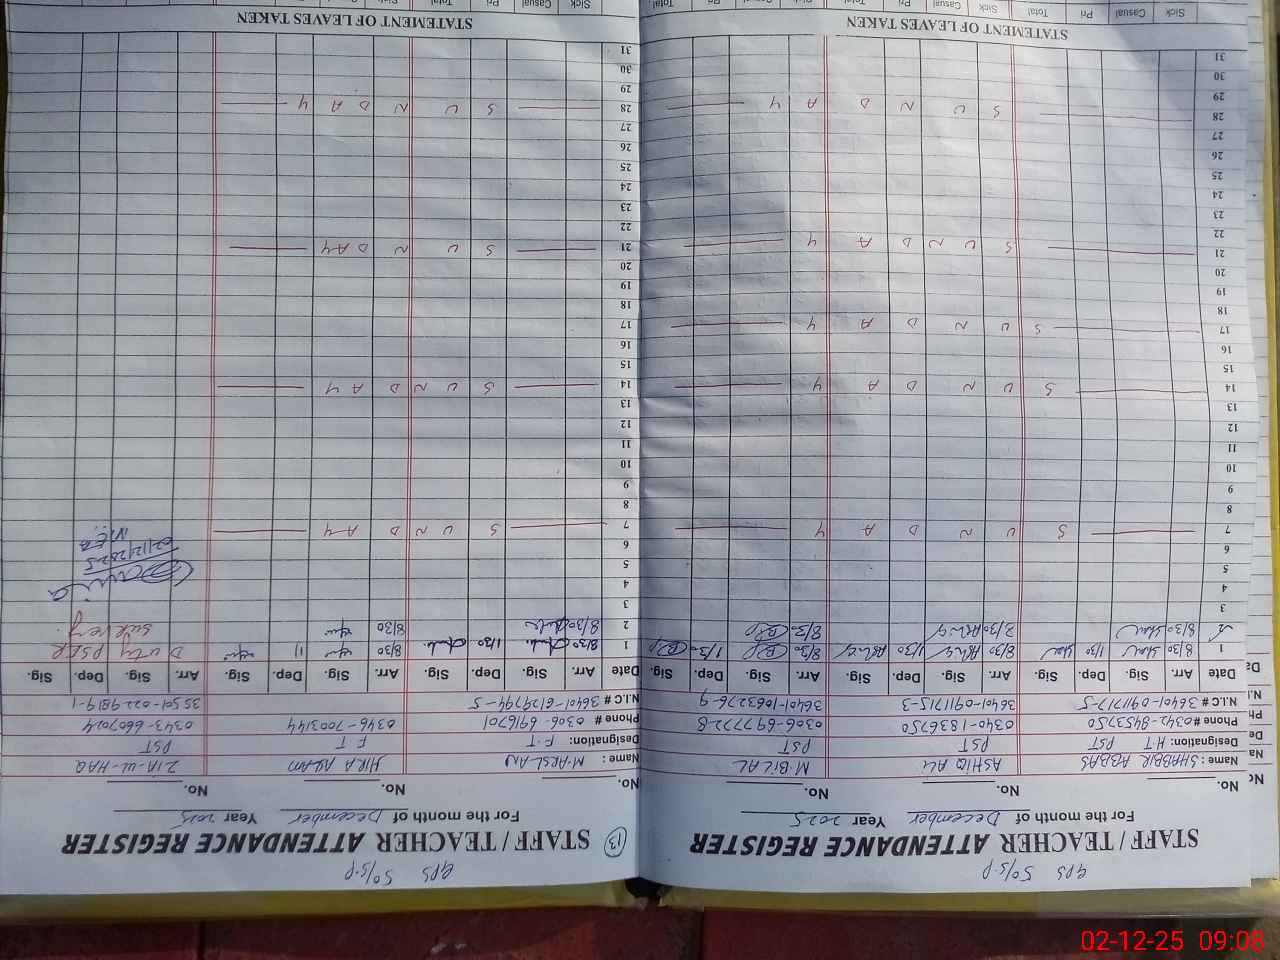 GPS 50/S.P
STAFF / TEACHER ATTENDANCE REGISTER
For the month of December Year 2025
No. No. No.
Name : SHABBIR ABBAS ASHIQ ALI M.BILAL
Designation: HT PST PST PST
Phone # 0342-8453750 0340-1836750 0306-697722-8
N.I.C # 36401-0911717-5 36401-0911715-3 36401-1063276-9
Date Arr. Sig. Dep. Sig. Arr. Sig. Dep. Sig. Arr. Sig. Dep. Sig.
1 8/30 1/30 8/30 1/30 8/30 1/30
2 8/30 8/30 8/30
3
4
5
6
7 S U N D A Y
8
9
10
11
12
13
14 S U N D A Y
15
16
17 S U N D A Y
18
19
20
21 S U N D A Y
22
23
24
25
26
27
28 S U N D A Y
29
30
31
STATEMENT OF LEAVES TAKEN
Sick Casual Pri Total Sick Casual Pri Total Sick Casual Pri Total
GPS 50/S.P
13
STAFF / TEACHER ATTENDANCE REGISTER
For the month of December Year 2025
No. No.
Name : M.ARSLAN HIRA ASLAM ZIA-UL-HAQ
Designation: F.T F T PST
Phone # 0306-6916701 0346-7003144 0343-6607024
N.I.C # 36401-6129794-5 35501-0229819-1
Date Arr. Sig. Dep. Sig. Arr. Sig. Dep. Sig. Arr. Sig. Dep. Sig.
1 8/30 1/30 8/30 Duty PSER
2 8/30 8/30 Survey.
3
4
5
6
02/12/2025
MEA
7 S U N D A Y
8
9
10
11
12
13
14 S U N D A Y
15
16
17
18
19
20
21 S U N D A Y
22
23
24
25
26
27
28 S U N D A Y
29
30
31
STATEMENT OF LEAVES TAKEN
Sick Casual Pri Total Sick Casual
02-12-25 09:08